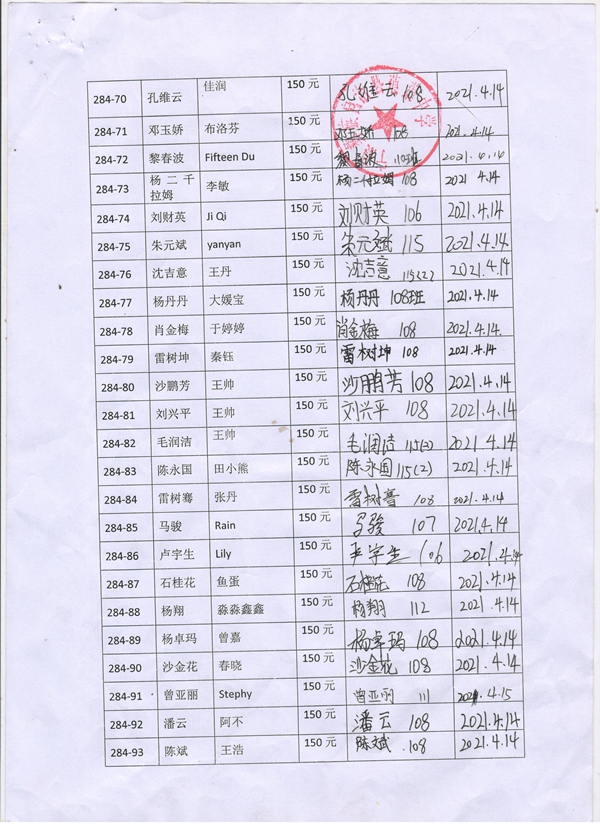 284-70 孔维云 佳润 150 元 孔维云 108 2021.4.14
284-71 邓玉娇 布洛芬 150 元 邓玉娇 108 2021.4.14
284-72 黎春波 Fifteen Du 150 元 黎春波 110班 2021.4.14
284-73 杨二千拉姆 李敏 150 元 杨二千拉姆 108 2021 4.14
284-74 刘财英 Ji Qi 150 元 刘财英 106 2021.4.14
284-75 朱元斌 yanyan 150 元 朱元斌 115 2021.4.14
284-76 沈吉意 王丹 150 元 沈吉意 115(2) 2021.4.14
284-77 杨丹丹 大媛宝 150 元 杨丹丹 108班 2021.4.14
284-78 肖金梅 于婷婷 150 元 肖金梅 108 2021.4.14
284-79 雷树坤 秦钰 150 元 雷树坤 108 2021.4.14
284-80 沙鹏芳 王帅 150 元 沙鹏芳 108 2021.4.14
284-81 刘兴平 王帅 150 元 刘兴平 108 2021.4.14
284-82 毛润洁 王帅 150 元 毛润洁 115(2) 2021 4.14
284-83 陈永国 田小熊 150 元 陈永国 115(2) 2021.4.14
284-84 雷树骞 张丹 150 元 雷树骞 108 2021.4.14
284-85 马骏 Rain 150 元 马骏 107 2021.4.14
284-86 卢宇生 Lily 150 元 卢宇生 106 2021.4.14
284-87 石桂花 鱼蛋 150 元 石桂花 108 2021.4.14
284-88 杨翔 淼淼鑫鑫 150 元 杨翔 112 2021.4.14
284-89 杨卓玛 曾嘉 150 元 杨卓玛 108 2021.4.14
284-90 沙金花 春晓 150 元 沙金花 108 2021.4.14
284-91 曾亚丽 Stephy 150 元 曾亚丽 111 2021.4.15
284-92 潘云 阿不 150 元 潘云 108 2021.4.14
284-93 陈斌 王浩 150 元 陈斌 108 2021.4.14